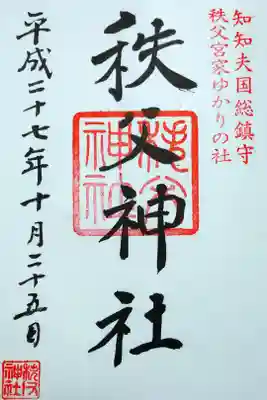 知知夫国総鎮守
秩父宮家ゆかりの社
秩父神社
秩父
神社
平成二十七年十月二十五日
秩父
神社